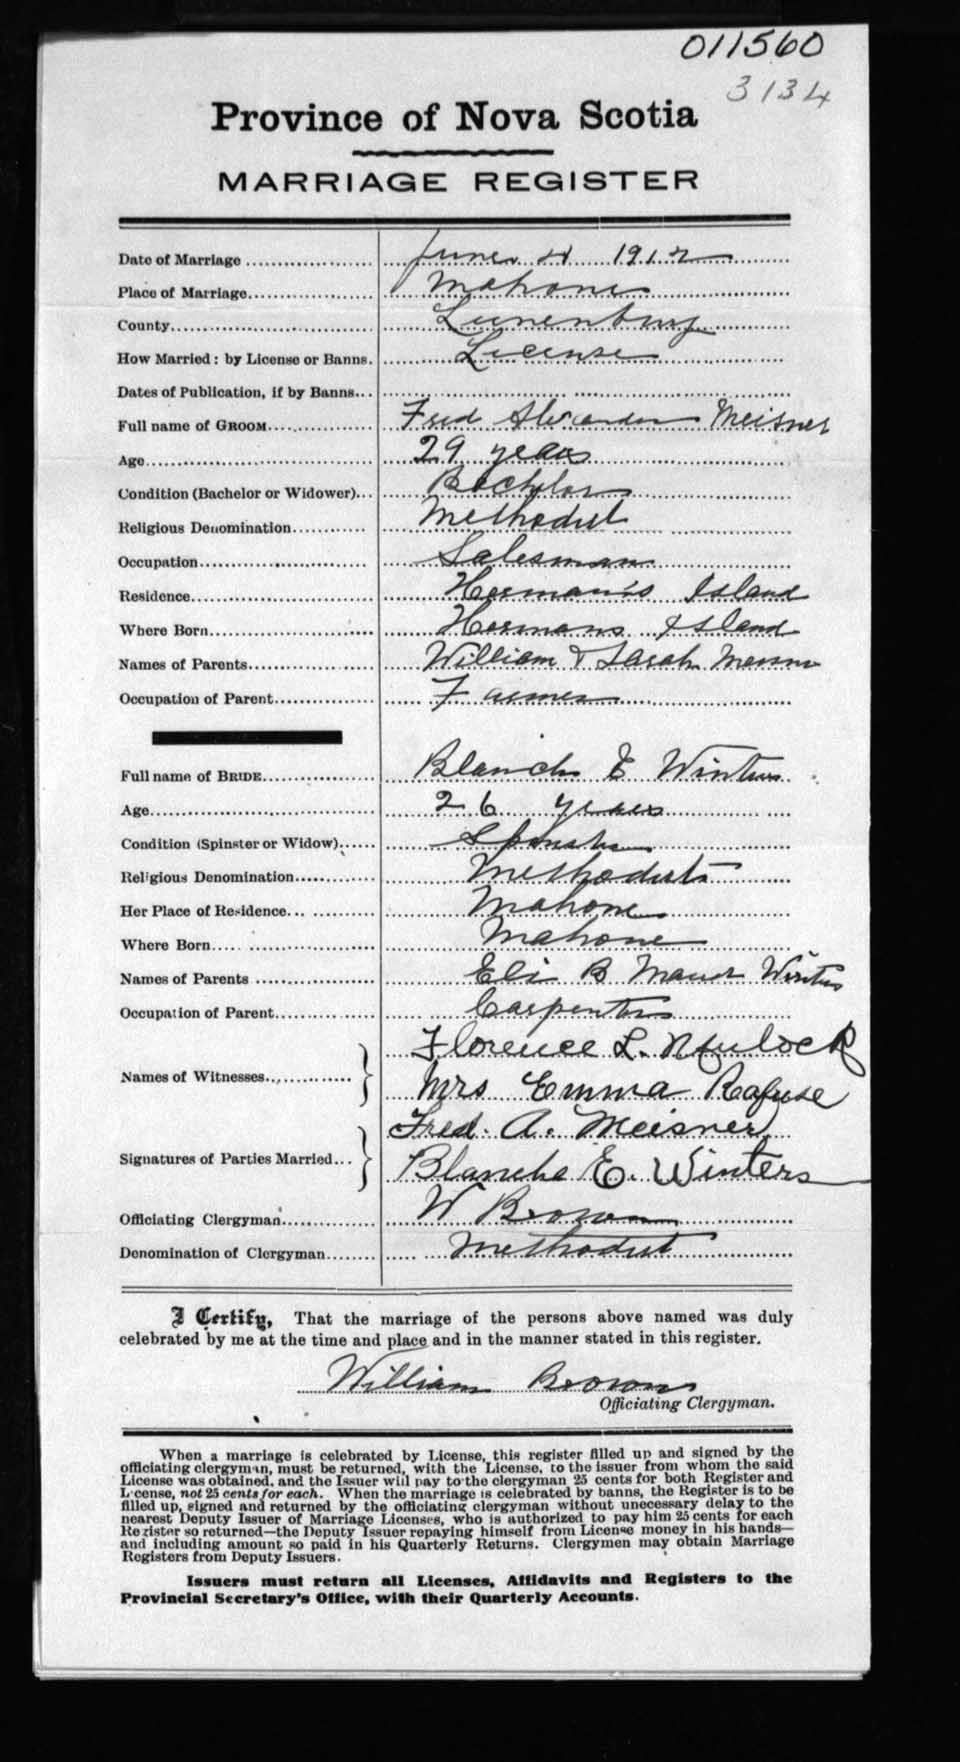 011560
3134
Province of Nova Scotia
MARRIAGE REGISTER
Date of Marriage June 1912
Place of Marriage Mahone
County Lunenburg
How Married: by License or Banns. License
Dates of Publication, if by Banns
Full name of GROOM Fred Alexander Meisner
Age 29 years
Condition (Bachelor or Widower) Bachelor
Religious Denomination Methodist
Occupation Salesman
Residence Herman's Island
Where Born Hermans Island
Names of Parents William & Sarah
Occupation of Parent Farmer
Full name of BRIDE Blanch E Winters
Age 26 years
Condition (Spinster or Widow) Spinster
Religious Denomination Methodist
Her Place of Residence Mahone
Where Born Mahone
Names of Parents Eli B Maud Winters
Occupation of Parent Carpenter
Florence L.
Names of Witnesses
Mrs Emma Rafuse
Fred. A. Meisner
Signatures of Parties Married
Blanche E. Winters
Officiating Clergyman W Brown
Denomination of Clergyman Methodist
I Certify, That the marriage of the persons above named was duly
celebrated by me at the time and place and in the manner stated in this register.
William Brown
Officiating Clergyman.
When a marriage is celebrated by License, this register filled up and signed by the
officiating clergyman, must be returned, with the License, to the issuer from whom the said
License was obtained, and the Issuer will pay to the clergyman 25 cents for both Register and
License, not 25 cents for each. When the marriage is celebrated by banns, the Register is to be
filled up, signed and returned by the officiating clergyman without unnecessary delay to the
nearest Deputy Issuer of Marriage Licenses, who is authorized to pay him 25 cents for each
Register so returned—the Deputy Issuer repaying himself from License money in his hands—
and including amount so paid in his Quarterly Returns. Clergymen may obtain Marriage
Registers from Deputy Issuers.
Issuers must return all Licenses, Affidavits and Registers to the
Provincial Secretary's Office, with their Quarterly Accounts.